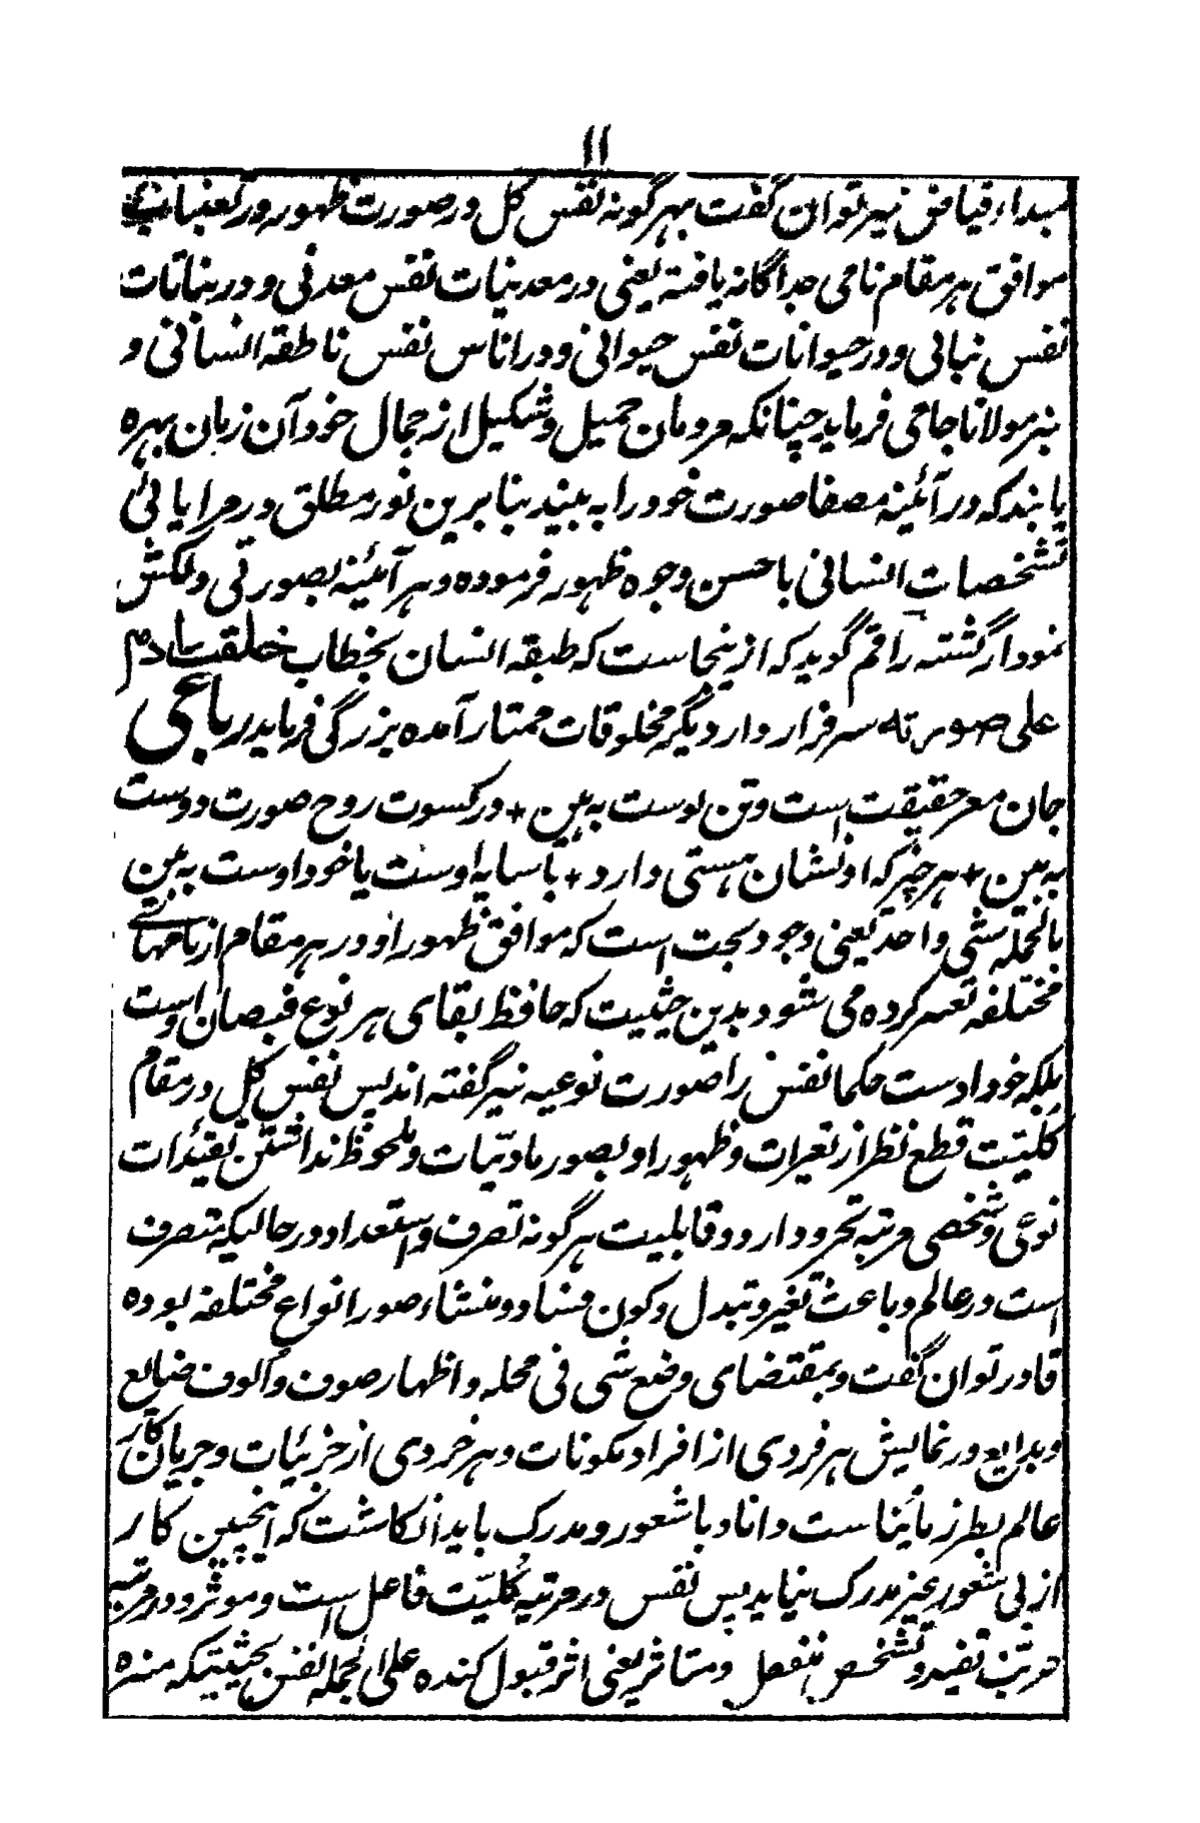 ۱۱
مبداء فیاض نیز توان گفت بهر گونه نفس کل در صورت ظهور در تعینات
موافق هر مقام نامی جداگانه یافته یعنی در معدنیات نفس معدنی و در نباتات
نفس نباتی و در حیوانات نفس حیوانی و در اناس نفس ناطقه انسانی و
نیز مولانا جامی فرماید چنانکه مردمان جمیل و شکیل از جمال خود آن زمان بهره
یابند که در آئینه مصفا صورت خود را به بیند بنابرین نور مطلق در مرایائی
تشخصات انسانی باحسن وجوه ظهور فرموده و هر آئینه بصورتی دلکش
نمودار گشته راقم گوید که ازینجاست که طبقه انسان بخطاب خلقت آدم
علی صورته سرفراز و از دیگر مخلوقات ممتاز آمده بزرگی فرماید رباعی
جان مغز حقیقت است و تن پوست به بین + در کسوت روح صورت دوست
به بین + هر چیز که او نشان هستی دارد + یا سایه اوست یا خود اوست به بین
بالجمله شی واحد یعنی وجود بحت است که موافق ظهور او در هر مقام از نامهائے
مختلفه تعبیر کرده می شود بدین حیثیت که حافظ بقای هر نوع فیضان اوست
بلکه خود اوست حکما نفس را صورت نوعیه نیز گفته اند پس نفس کل در مقام
کلیّت قطع نظر از تغیرات و ظهور او بصور مادیّات و ملحوظ نداشتن تقیّدات
نوعی و شخصی مرتبه تجرد دارد و قابلیت هر گونه تصرف و استعداد در حالیکه متصرف
است در عالم و باعث تغیر و تبدل و کون و فساد و منشاء صور انواع مختلفه بوده
قادر توان گفت و بمقتضای وضع شی فی محله و اظهار صوف و الوف ضایع
و بدایع در نمایش هر فردی از افراد مکونات و هر خردی از جزئیات و جریان کار
عالم بطرز نمایناست دانا و با شعور و مدرک باید انکاشت که اینچنین کار
از بی شعور بجز مدرک نیاید پس نفس در مرتبه کُلیّت فاعل است و موثر و در مرتبه
مرتبت تقید و تشخص منفعل و متاثر یعنی اثر قبول کنده علی الجمله نفس بحیثیتیکه منزه